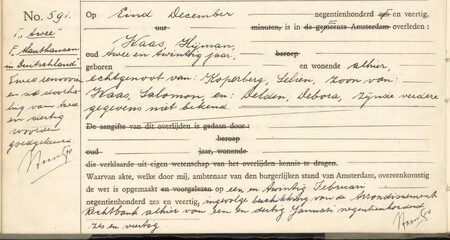 No. 591.
Op Eind December negentienhonderd en veertig,
uur minuten, is in de gemeente Amsterdam overleden :
"Twee"
Kaas, Hijman,
oud twee en twintig jaar, beroep
"Mauthausen
in Duitschland"
geboren en wonende alhier,
echtgenoot van: Koperberg, Selien, zoon van:
Kaas, Salomon, en: Delden, Debora, zijnde verdere
gegevens niet bekend.
Twee renvooien
en de doorha-
ling van twee
en dertig
woorden
goedgekeurd.
De aangifte van dit overlijden is gedaan door :
beroep
oud jaar, wonende
die verklaarde uit eigen wetenschap van het overlijden kennis te dragen.
Waarvan akte, welke door mij, ambtenaar van den burgerlijken stand van Amsterdam, overeenkomstig
de wet is opgemaakt en voorgelezen op een en twintig Februari
negentienhonderd zes en veertig, ingevolge beschikking van de Arrondissements
Rechtbank alhier van een en dertig Januari negentienhonderd
zes en veertig